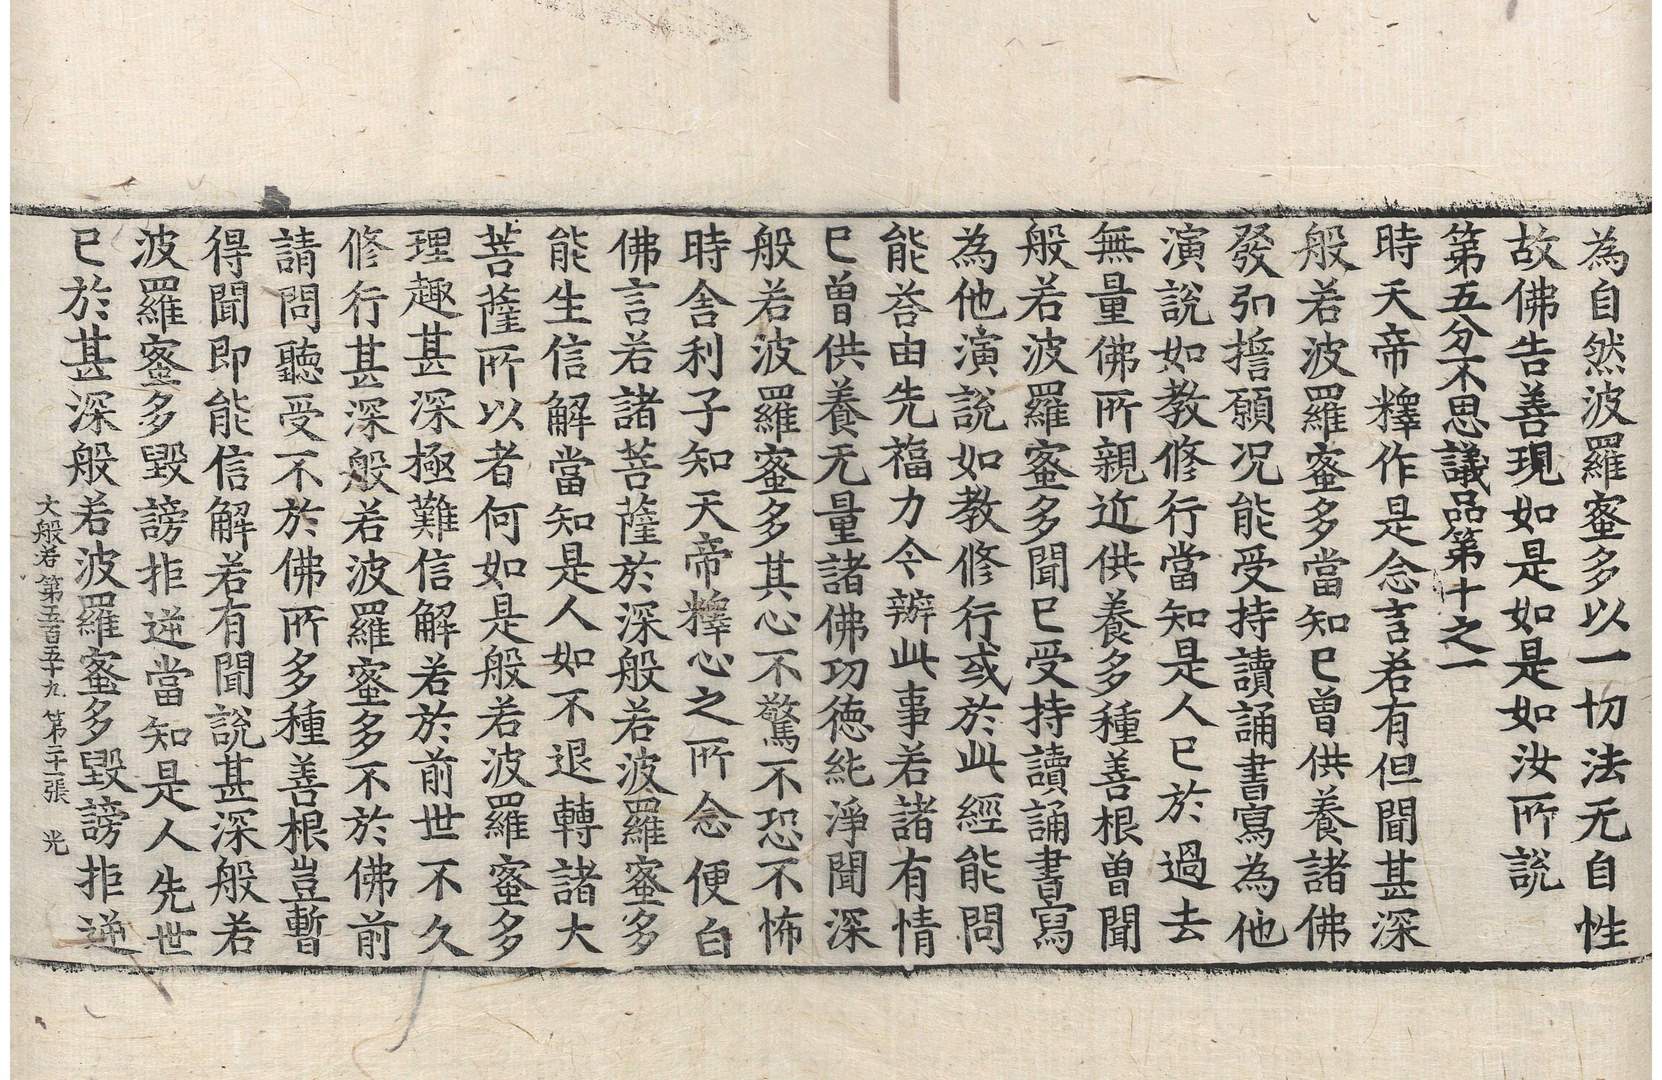 為自然波羅蜜多以一切法无自性
故佛告善現如是如是如汝所說
第五分不思議品第十之一
時天帝釋作是念言若有但聞甚深
般若波羅蜜多當知已曾供養諸佛
發弘誓願况能受持讀誦書寫為他
演說如教修行當知是人已於過去
無量佛所親近供養多種善根曾聞
般若波羅蜜多聞已受持讀誦書寫
為他演說如教修行或於此經能問
能荅由先福力今辦此事若諸有情
已曾供養无量諸佛功德純淨聞深
般若波羅蜜多其心不驚不恐不怖
時舍利子知天帝釋心之所念便白
佛言若諸菩薩於深般若波羅蜜多
能生信解當知是人如不退轉諸大
菩薩所以者何如是般若波羅蜜多
理趣甚深極難信解若於前世不久
修行甚深般若波羅蜜多不於佛前
請問聽受不於佛所多種善根豈暫
得聞即能信解若有聞說甚深般若
波羅蜜多毀謗拒逆當知是人先世
已於甚深般若波羅蜜多毀謗拒逆
大般若第五百五十九 第二十一張 光